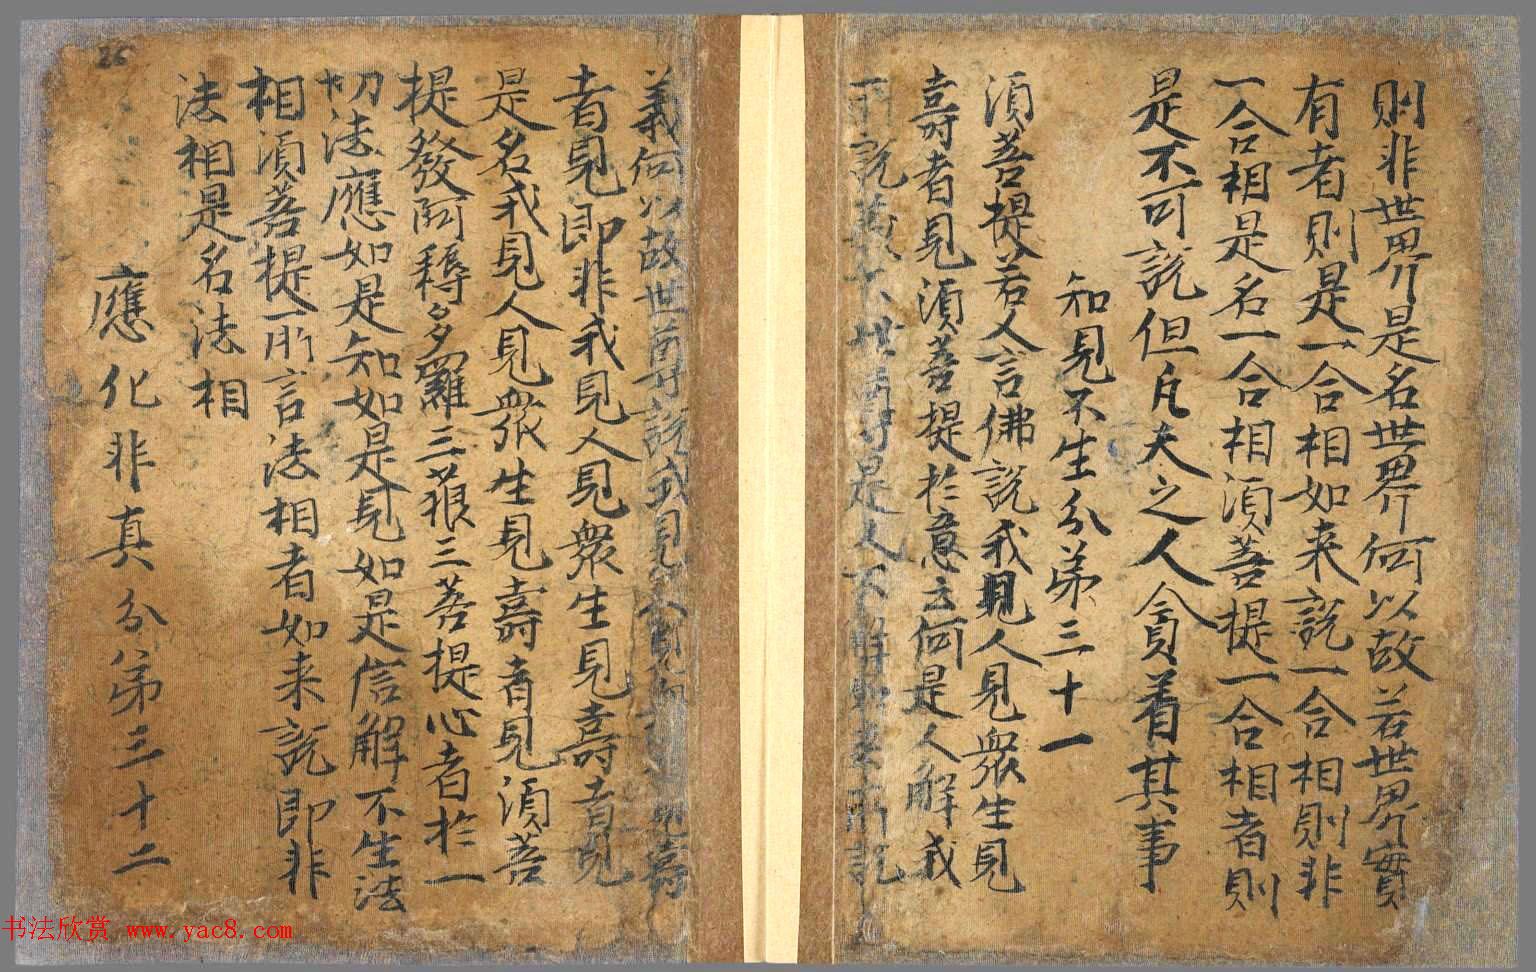 則非世界是名世界何以故若世界實
有者則是一合相如来說一合相則非
一合相是名一合相須菩提一合相者則
是不可說但凡夫之人貪着其事
知見不生分弟三十一
須菩提若人言佛說我見人見衆生見
壽者見須菩提扵意云何是人解我
所說義不世尊是人不解如来所說
義何以故世尊說我見人見衆生見壽
者見即非我見人見衆生見壽者見
是名我見人見衆生見壽者見須菩
提發阿耨多羅三藐三菩提心者扵一
切法應如是知如是見如是信解不生法
相須菩提所言法相者如来說即非
法相是名法相
應化非真分弟三十二
26
书法欣赏 www.yac8.com